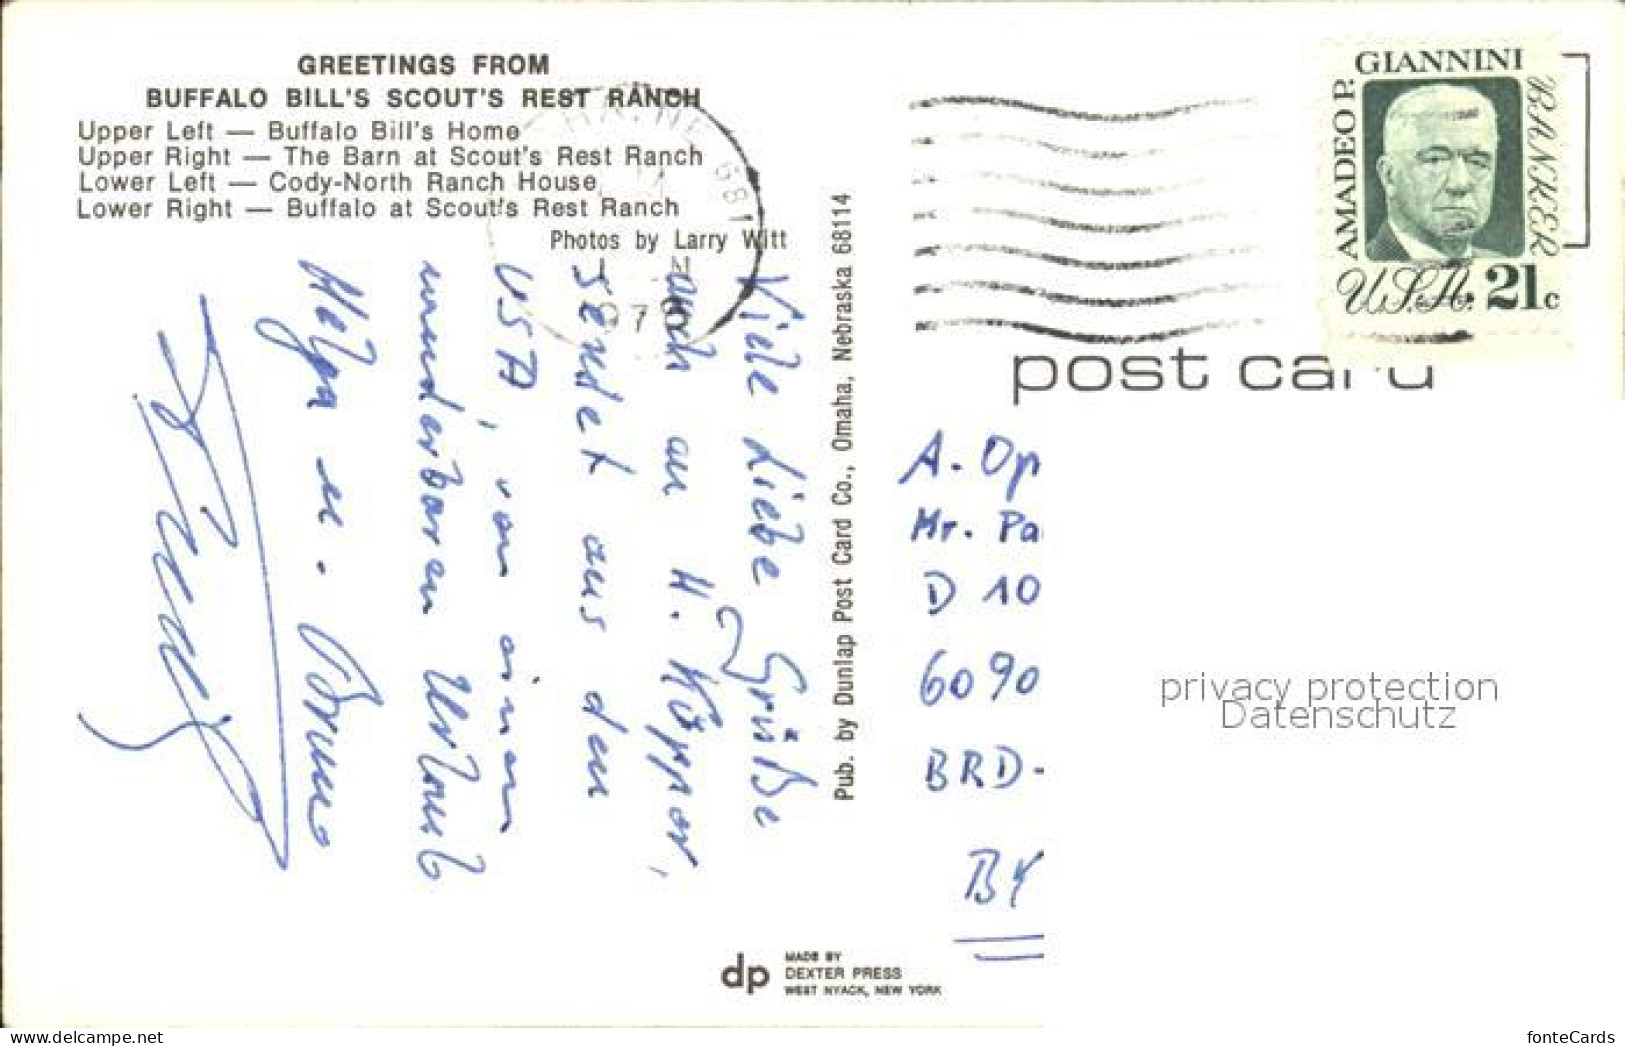 GREETINGS FROM
BUFFALO BILL'S SCOUT'S REST RANCH
Upper Left — Buffalo Bill's Home
Upper Right — The Barn at Scout's Rest Ranch
Lower Left — Cody-North Ranch House
Lower Right — Buffalo at Scout's Rest Ranch
Photos by Larry Witt
Viele Liebe Grüße
auch an H.
sendet aus den
USA, von einem
wunderbaren Urlaub
Helga u. Bruno
Pub. by Dunlap Post Card Co., Omaha, Nebraska 68114
681
AMADEO P. GIANNINI BANKER
U.S.A. 21c
post card
A. Op
Mr. Pa
D 10
6090
BRD-
privacy protection
Datenschutz
dp
MADE BY
DEXTER PRESS
WEST NYACK, NEW YORK
www.delcampe.net
fonteCards